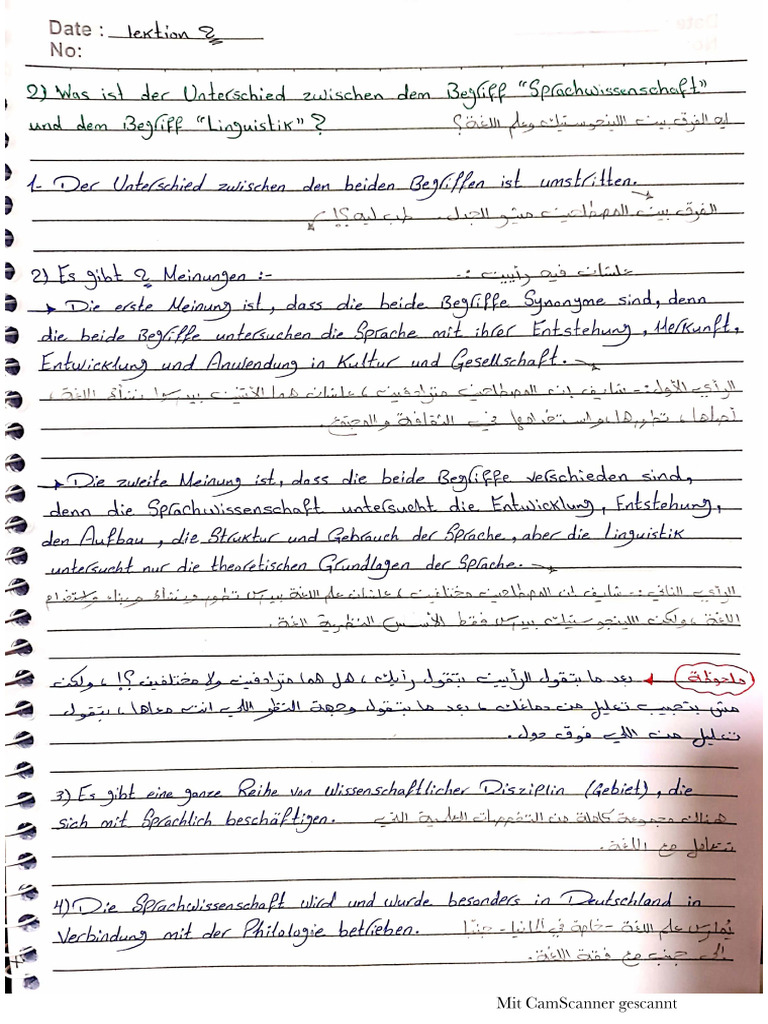 Date : lektion 2
No:
2) Was ist der Unterschied zwischen dem Begriff "Sprachwissenschaft"
und dem Begriff "Linguistik" ? ايه الفرق بين اللينجوستيك وعلم اللغة؟
1- Der Unterschied zwischen den beiden Begriffen ist umstritten.
الفرق بين المصطلحين مثير الجدل. طب ليه؟!
2) Es gibt 2 Meinungen :- علشان فيه رأيين :-
→ Die erste Meinung ist, dass die beide Begriffe Synonyme sind, denn
die beide Begriffe untersuchen die Sprache mit ihrer Entstehung, Herkunft,
Entwicklung und Anwendung in Kultur und Gesellschaft.
الرأي الأول :- شايف إن المصطلحين مترادفين، علشان هما الأتنين بيدرسوا نشأة اللغة،
أصلها، تطورها، واستخدامها في الثقافة والمجتمع.
→ Die zweite Meinung ist, dass die beide Begriffe verschieden sind,
denn die Sprachwissenschaft untersucht die Entwicklung, Entstehung,
den Aufbau, die Struktur und Gebrauch der Sprache, aber die Linguistik
untersucht nur die theoretischen Grundlagen der Sprache.
الرأي التاني :- شايف إن المصطلحين مختلفين، علشان علم اللغة بيدرس تطور ونشأة وبناء واستخدام
اللغة، ولكن اللينجوستيك بيدرس فقط الأسس النظرية للغة.
ملحوظة ← بعد ما بتقول الرأيين بتقول رأيك، هل هما مترادفين ولا مختلفين؟!، ولكن
مش بتجيب تعليل من دماغك، بعد ما بتقول وجهة النظر اللي انت معاها، بتقول
تعليل من اللي فوق دول.
3) Es gibt eine ganze Reihe von wissenschaftlicher Disziplin (Gebiet), die
sich mit Sprachlich beschäftigen. هناك مجموعة كاملة من التخصصات العلمية التي
تتعامل مع اللغة.
4) Die Sprachwissenschaft wird und wurde besonders in Deutschland in
Verbindung mit der Philologie betrieben. يُمارس علم اللغة - خاصة في ألمانيا - جنبًا
إلى جنب مع فقة اللغة.
Mit CamScanner gescannt